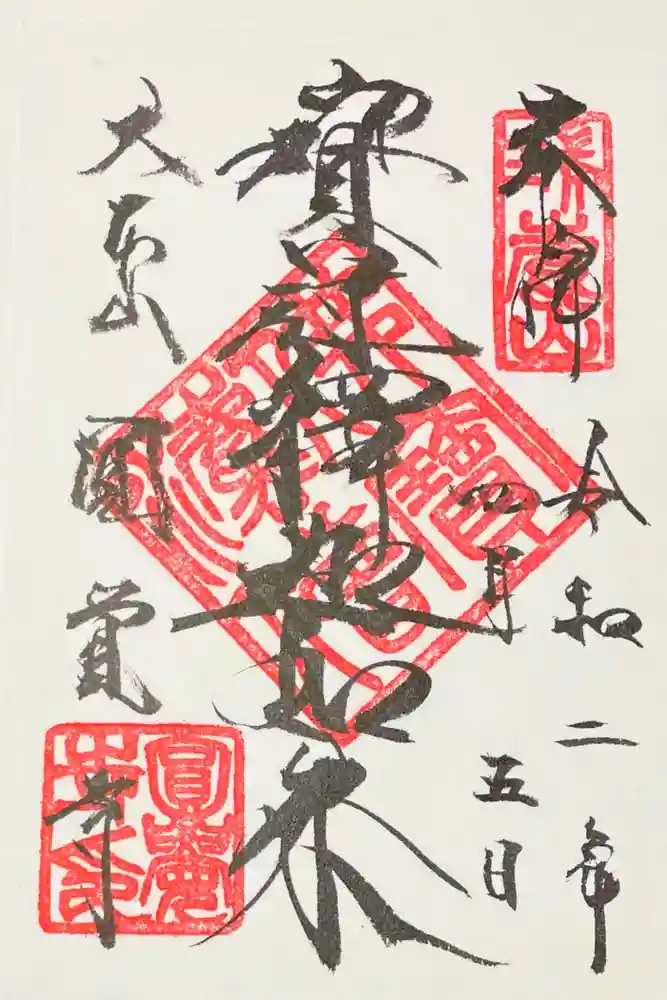 奉拝
瑞鹿山
令和二年
四月五日
寶冠釋迦如来
大本山
圓覚寺